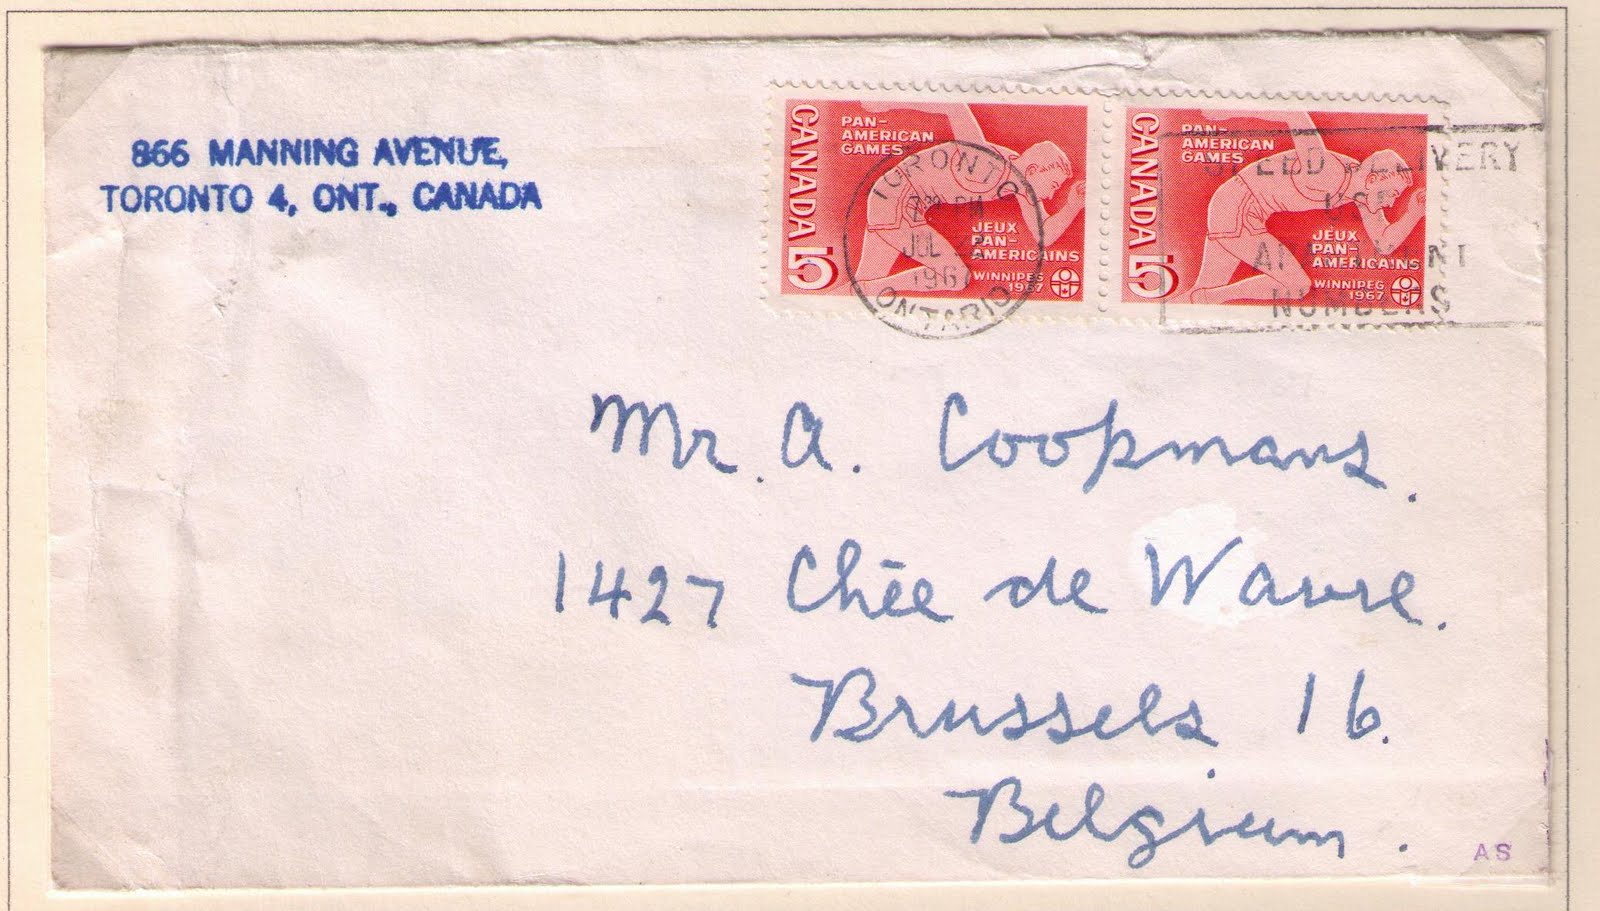 866 MANNING AVENUE,
TORONTO 4, ONT., CANADA
CANADA 5
PAN-
AMERICAN
GAMES
JEUX
PAN-
AMERICAINS
WINNIPEG
1967
CANADA 5
PAN-
AMERICAN
GAMES
JEUX
PAN-
AMERICAINS
WINNIPEG
1967
TORONTO
PM
JUL
1967
ONTARIO
SPEED DELIVERY
USE
APARTMENT
NUMBERS
Mr. A. Coopmans.
1427 Chée de Wavre.
Brussels 16.
Belgium.
AS